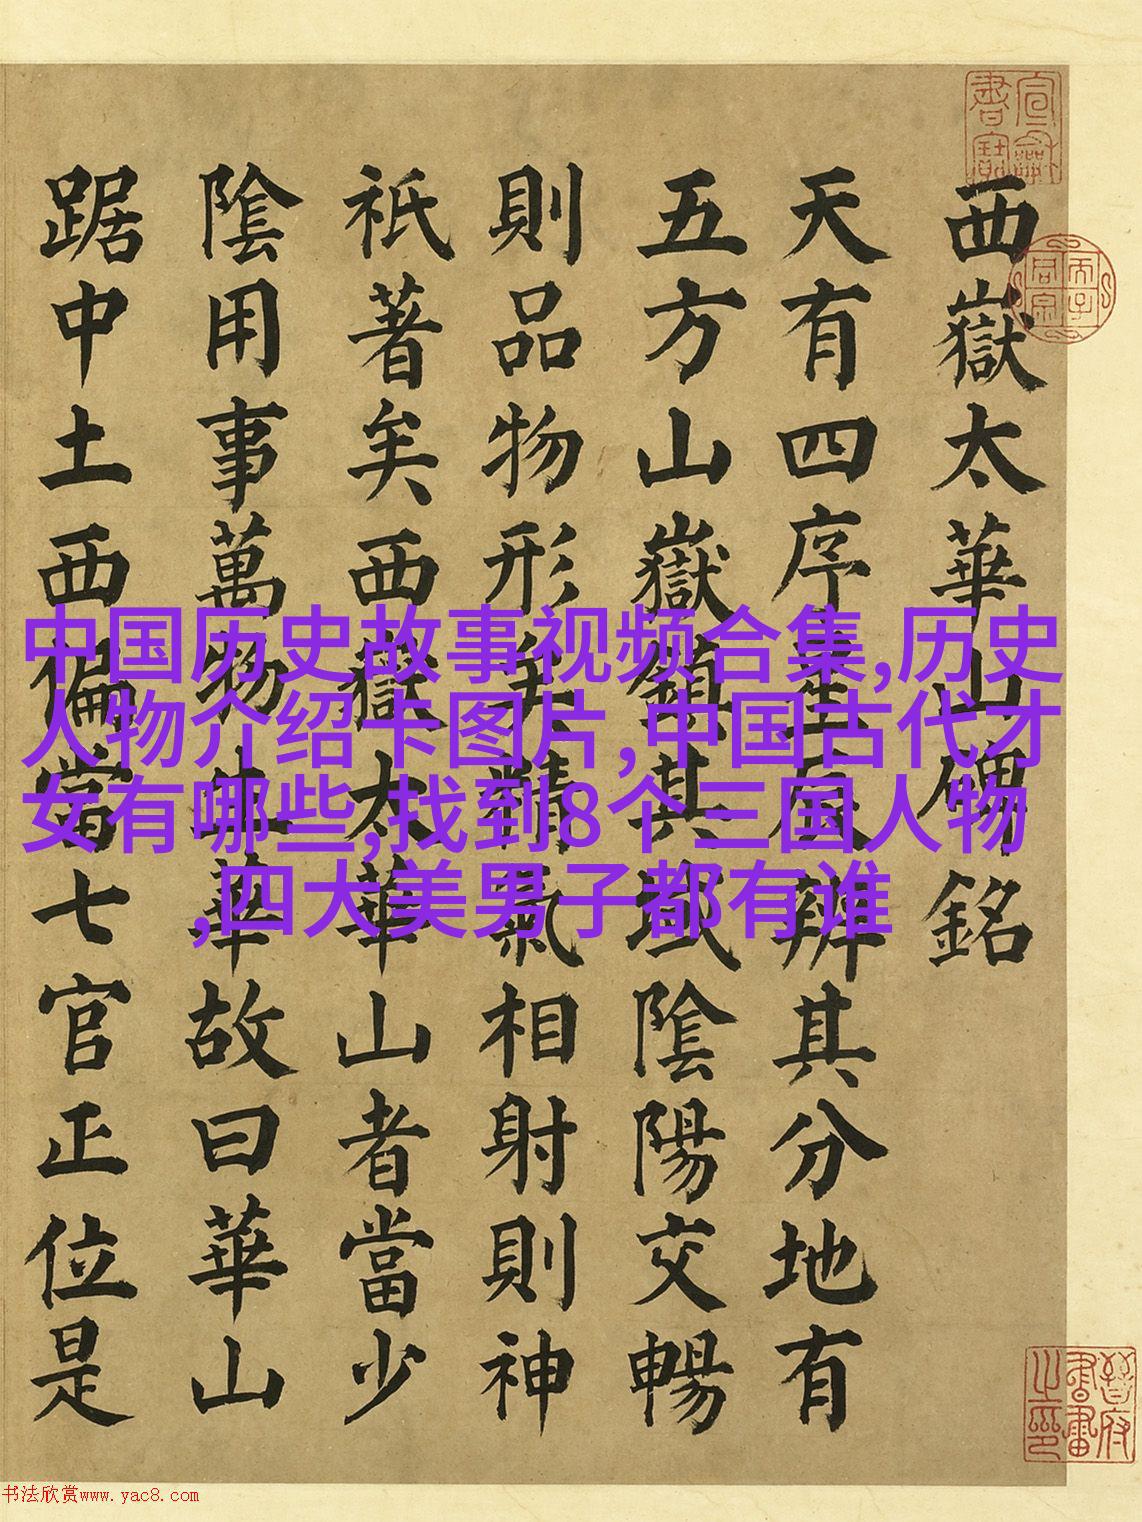 西嶽太華山碑銘
天有四序星辰辨其分地有
五方山嶽鎮其域陰陽交暢
則品物形矣精氣相射則神
祇著矣西嶽太華山者當少
陰用事萬物生華故曰華山
踞中土西偏當七官正位是
中国历史故事视频合集,历史
人物介绍卡图片,中国古代才
女有哪些,找到8个三国人物
,四大美男子都有谁
晉府書畫之印
书法欣赏www.yac8.com